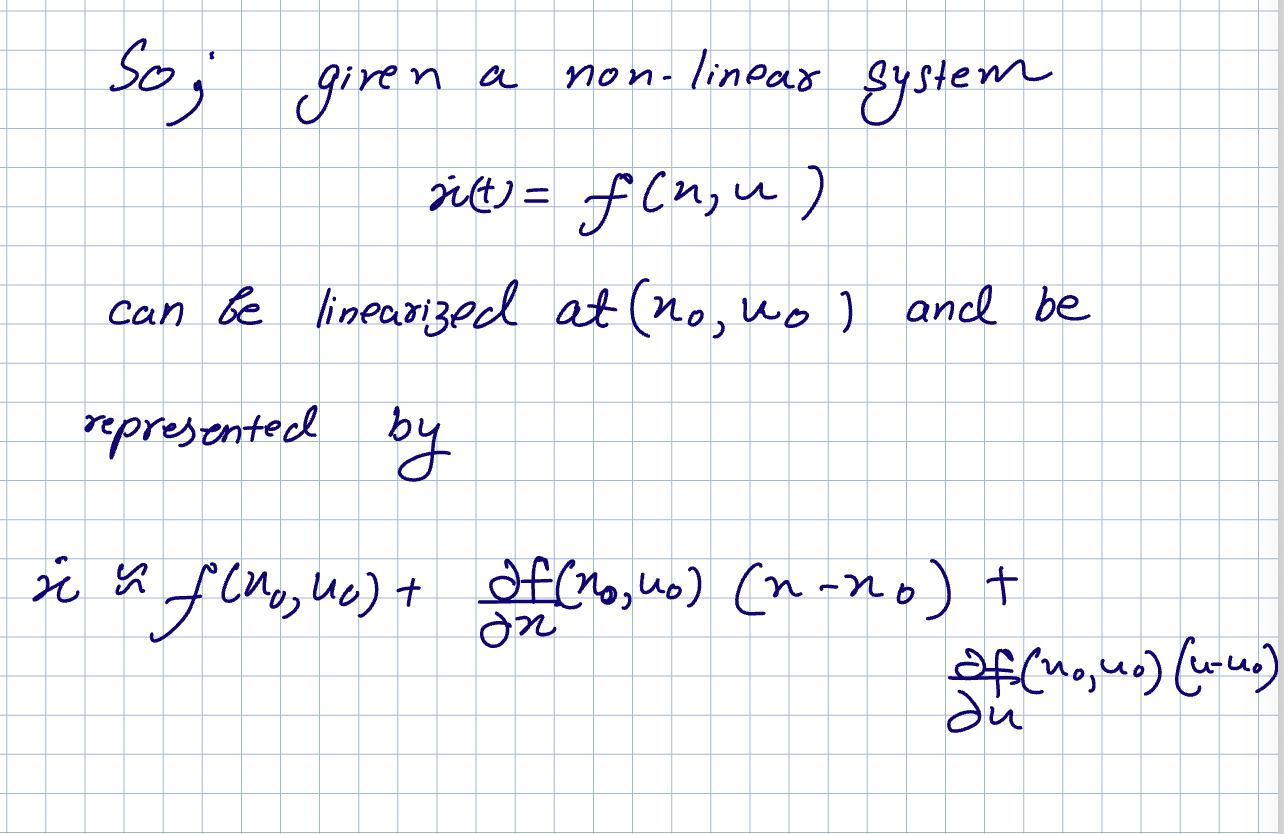 So; given a non-linear system
ẋ(t) = f(x, u)
can be linearized at (x₀, u₀) and be
represented by
ẋ ≈ f(x₀, u₀) + ∂f/∂x (x₀, u₀) (x - x₀) +
∂f/∂u (x₀, u₀) (u - u₀)